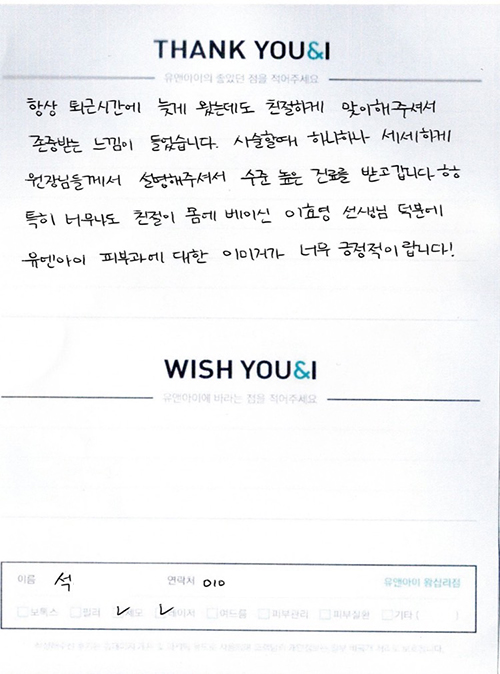 THANK YOU&I
유앤아이의 좋았던 점을 적어주세요
항상 퇴근시간에 늦게 왔는데도 친절하게 맞이해주셔서
존중받는 느낌이 들었습니다. 시술할때 하나하나 세세하게
원장님들께서 설명해주셔서 수준 높은 진료를 받고갑니다 ㅎㅎ
특히 너무나도 친절이 몸에 베이신 이효영 선생님 덕분에
유엔아이 피부과에 대한 이미지가 너무 긍정적이랍니다!
WISH YOU&I
유앤아이에 바라는 점을 적어주세요
이름 석 연락처 010 유앤아이 왕십리점
보톡스 필러 제모 레이저 여드름 피부관리 피부질환 기타 ( )